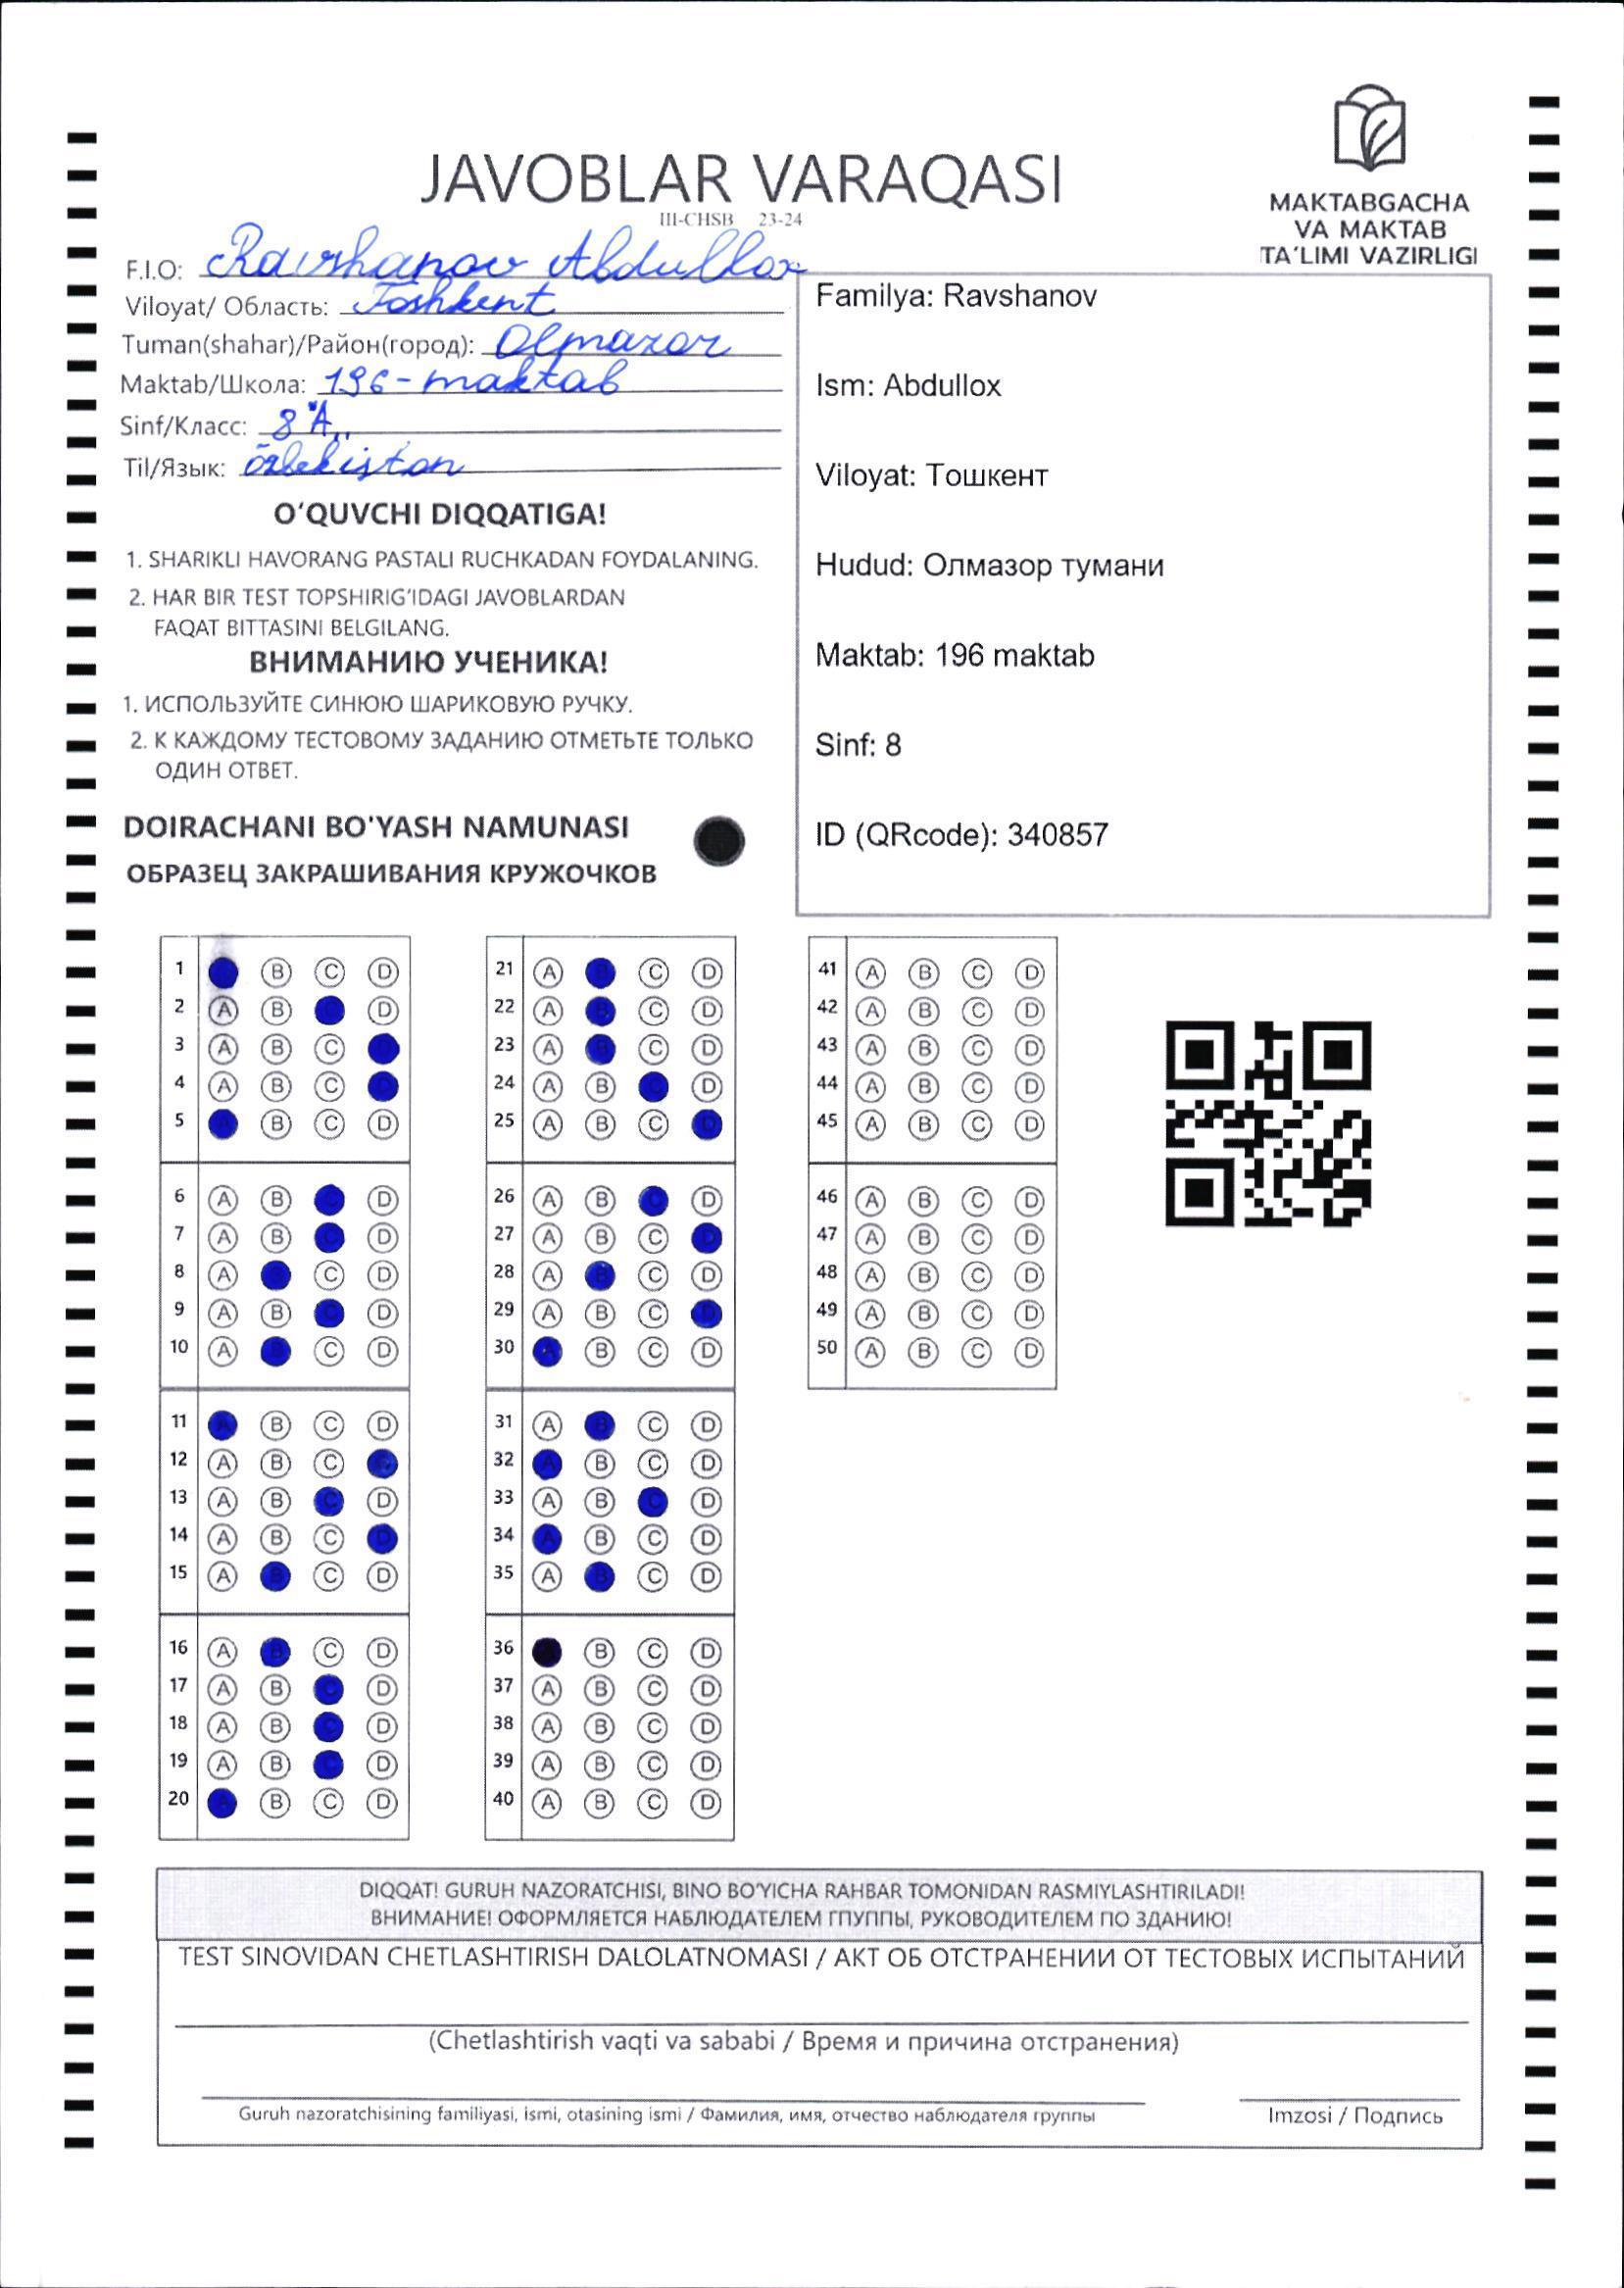 JAVOBLAR VARAQASI
III-CHSB 23-24
MAKTABGACHA
VA MAKTAB
TA'LIMI VAZIRLIGI
F.I.O: Ravshanov Abdullox
Viloyat/ Область: Toshkent
Tuman(shahar)/Район(город): Olmazor
Maktab/Школа: 196-maktab
Sinf/Класс: 8 "A"
Til/Язык: õzbekiston
O'QUVCHI DIQQATIGA!
1. SHARIKLI HAVORANG PASTALI RUCHKADAN FOYDALANING.
2. HAR BIR TEST TOPSHIRIG'IDAGI JAVOBLARDAN
FAQAT BITTASINI BELGILANG.
ВНИМАНИЮ УЧЕНИКА!
1. ИСПОЛЬЗУЙТЕ СИНЮЮ ШАРИКОВУЮ РУЧКУ.
2. К КАЖДОМУ ТЕСТОВОМУ ЗАДАНИЮ ОТМЕТЬТЕ ТОЛЬКО
ОДИН ОТВЕТ.
DOIRACHANI BO'YASH NAMUNASI
ОБРАЗЕЦ ЗАКРАШИВАНИЯ КРУЖОЧКОВ
Familya: Ravshanov
Ism: Abdullox
Viloyat: Тошкент
Hudud: Олмазор тумани
Maktab: 196 maktab
Sinf: 8
ID (QRcode): 340857
1 B C D
2 A B D
3 A B C
4 A B C
5 A B C D
6 A B C D
7 A B C D
8 A C D
9 A B C D
10 A B C D
11 A B C D
12 A B C
13 A B C D
14 A B C D
15 A B C D
16 A B C D
17 A B C D
18 A B C D
19 A B C D
20 A B C D
21 A B C D
22 A B C D
23 A B C D
24 A B C D
25 A B C D
26 A B C D
27 A B C D
28 A B C D
29 A B C D
30 A B C D
31 A B C D
32 A B C D
33 A B C D
34 A B C D
35 A B C D
36 B C D
37 A B C D
38 A B C D
39 A B C D
40 A B C D
41 A B C D
42 A B C D
43 A B C D
44 A B C D
45 A B C D
46 A B C D
47 A B C D
48 A B C D
49 A B C D
50 A B C D
DIQQAT! GURUH NAZORATCHISI, BINO BO'YICHA RAHBAR TOMONIDAN RASMIYLASHTIRILADI!
ВНИМАНИЕ! ОФОРМЛЯЕТСЯ НАБЛЮДАТЕЛЕМ ГПУППЫ, РУКОВОДИТЕЛЕМ ПО ЗДАНИЮ!
TEST SINOVIDAN CHETLASHTIRISH DALOLATNOMASI / АКТ ОБ ОТСТРАНЕНИИ ОТ ТЕСТОВЫХ ИСПЫТАНИЙ
(Chetlashtirish vaqti va sababi / Время и причина отстранения)
Guruh nazoratchisining familiyasi, ismi, otasining ismi / Фамилия, имя, отчество наблюдателя группы
Imzosi / Подпись